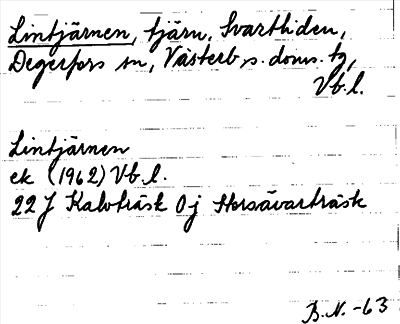 Lintjärnen, tjärn, Svartliden,
Degerfors sn, Västerb.s. doms. tg,
Vb.l.
Lintjärnen
ek (1962) Vb.l.
22 J Kalvträsk 0j Storsävarträsk
B.N. -63